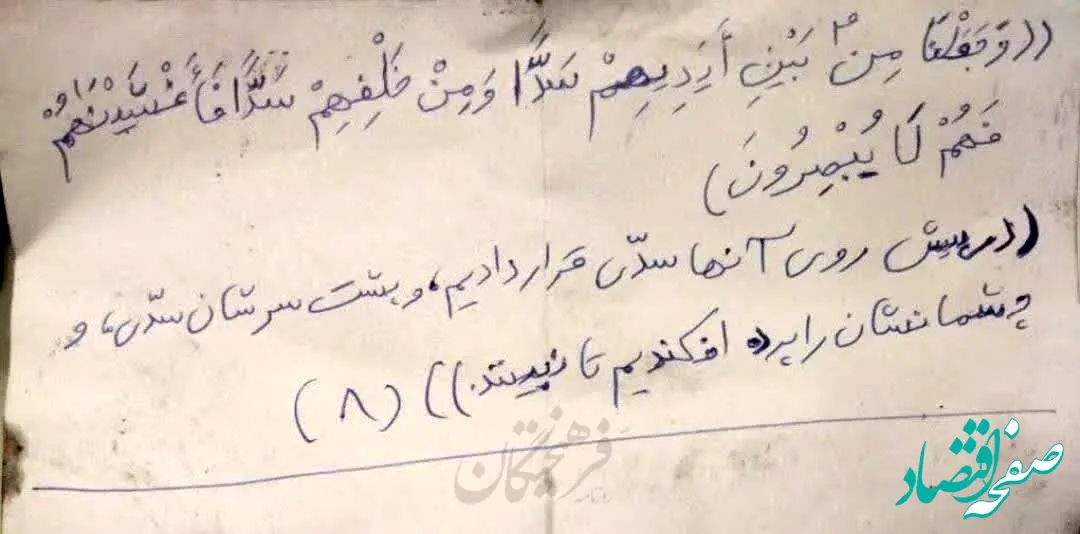 ((وَجَعَلْنَا مِنْ بَيْنِ أَيْدِيهِمْ سَدًّا وَمِنْ خَلْفِهِمْ سَدًّا فَأَغْشَيْنَهُمْ
فَهُمْ لَا يُبْصِرُونَ)
(در پیش روی آنها سدّی قرار دادیم، و پشت سرشان سدّی، و
چشمانشان را پرده افکندیم تا نبینند.)) (۸)
فرهیختگان
صفحه اقتصاد